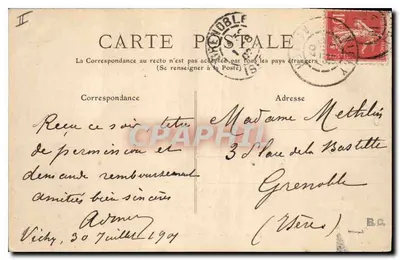 II
GRENOBLE
CARTE POSTALE
La Correspondance au recto n'est pas acceptée par tous les pays étrangers
(Se renseigner à la Poste)
Correspondance
Adresse
Recu ce soir
de permission et
demande remboursement
amitiés bien sincères
Vichy, 30 Juillet 190
Madame
3 Place de la Bastille
Grenoble
(Isère)
CPAPHIL